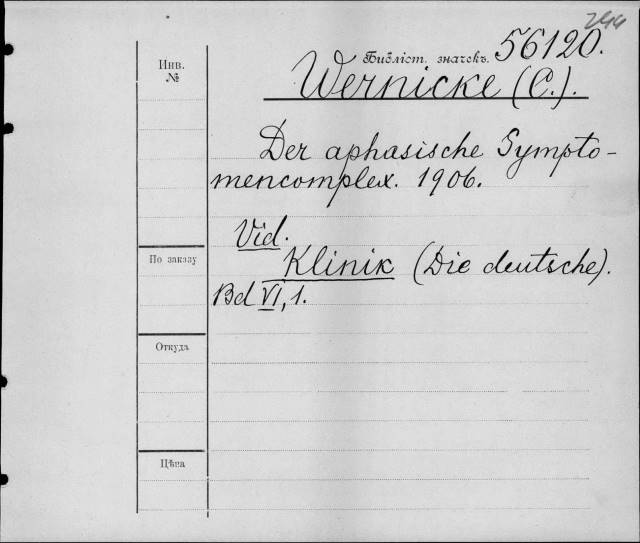 244
Библіот. значекъ. 56120.
Инв.
№
Wernicke (C.).
Der aphasische Sympto-
mencomplex. 1906.
Vid.
По заказу
Klinik (Die deutsche).
Bd VI, 1.
Откуда
Цѣна